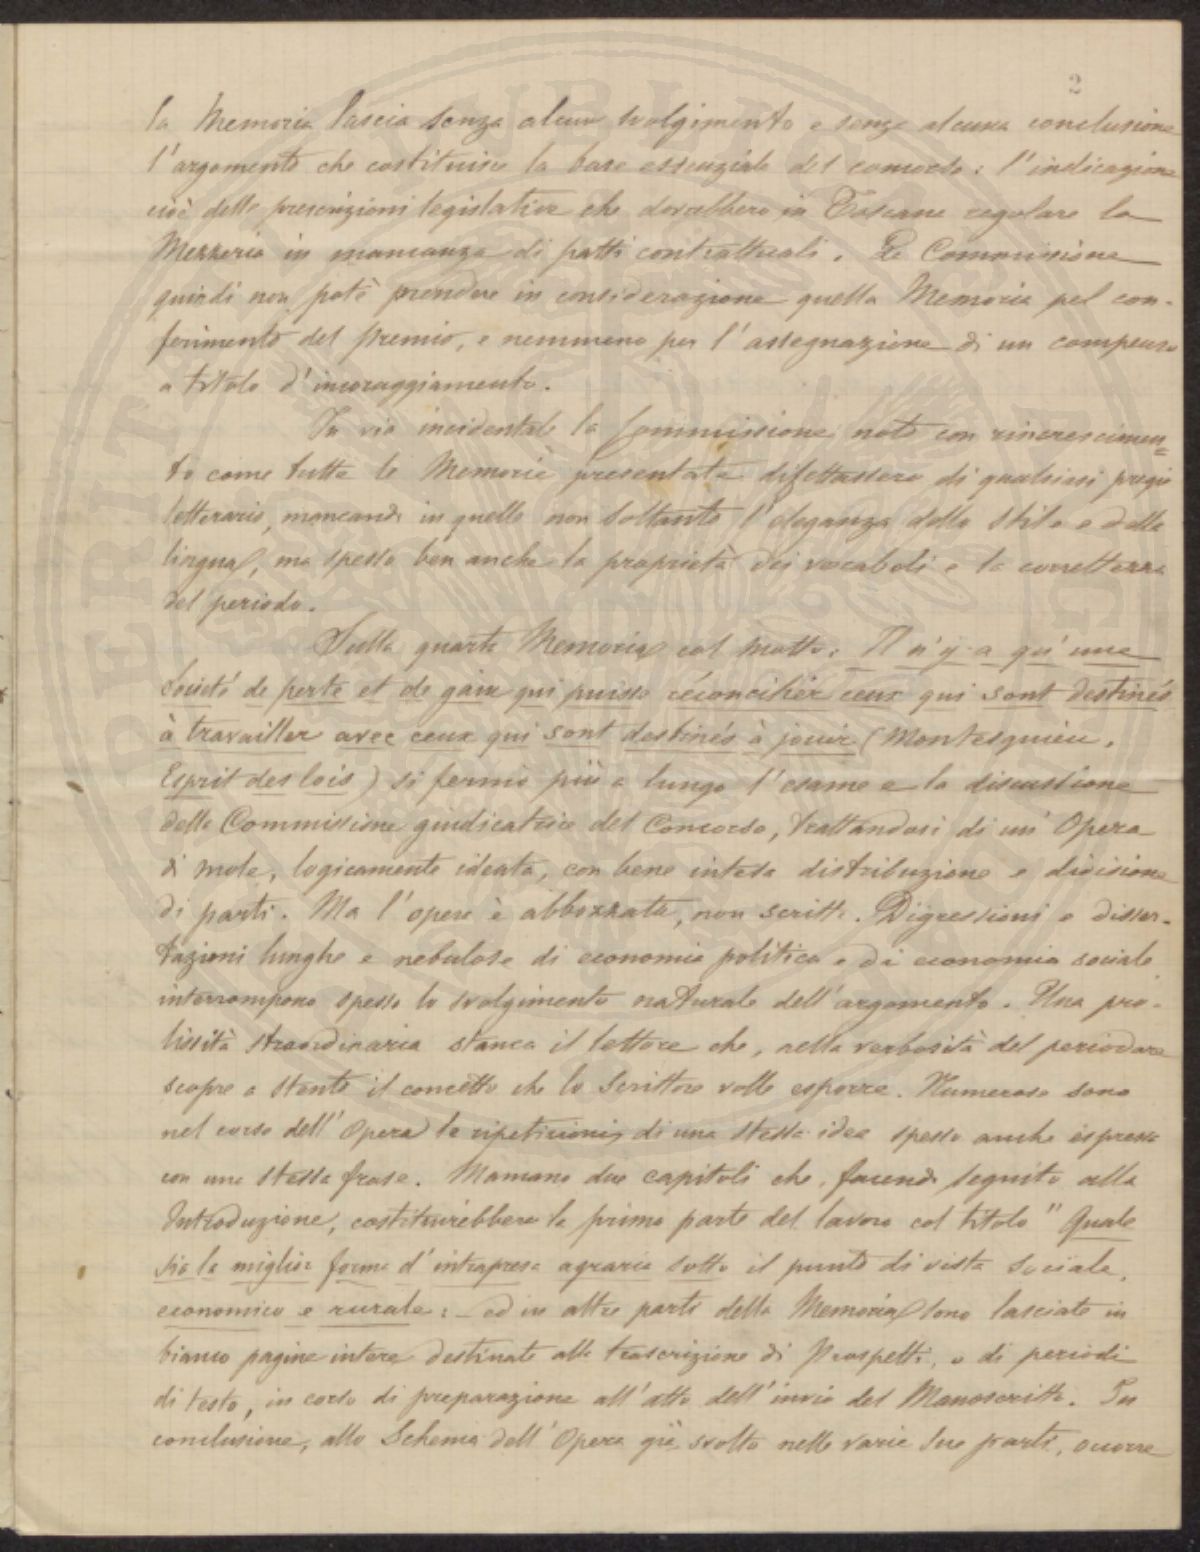 2
la Memoria lascia senza alcuno svolgimento e senza alcuna conclusione
l'argomento che costituisce la base essenziale del concorso: l'indicazione
cioè delle prescrizioni legislative che dovrebbero in Toscana regolare la
Mezzeria in mancanza di patti contrattuali. La Commissione
quindi non potè prendere in considerazione quella Memoria pel con-
ferimento del premio, e nemmeno per l'assegnazione di un compenso
a titolo d'incoraggiamento.
In via incidentale la Commissione notò con rincrescimen=
to come tutte le Memorie presentate difettassero di qualsiasi pregio
letterario, mancando in quelle non soltanto l'eleganza dello stile e della
lingua, ma spesso ben anche la proprietà dei vocaboli e la correttezza
del periodo.
Sulla quarta Memoria col motto: Il n'y a qu'une
Société de perte et de gain qui puisse réconcilier ceux qui sont destinés
à travailler avec ceux qui sont destinés à jouir (Montesquieu.
Esprit des lois) si fermò più a lungo l'esame e la discussione
della Commissione giudicatrice del Concorso, trattandosi di un' Opera
di mole, logicamente ideata, con bene intesa distribuzione e divisione
di parti. Ma l'opera è abbozzata, non scritta. Digressioni e disser-
tazioni lunghe e nebulose di economia politica e di economia sociale
interrompono spesso lo svolgimento naturale dell'argomento. Una pro-
lissità straordinaria stanca il lettore che, nella verbosità del periodare
scopre a stento il concetto che lo Scrittore volle esporre. Numerose sono
nel corso dell'Opera le ripetizioni di una stessa idea spesso anche espressa
con una stessa frase. Mancano due capitoli che, facendo seguito alla
Introduzione, costituirebbero la prima parte del lavoro col titolo "Quale
sia la miglior forma d'intrapresa agraria sotto il punto di vista sociale,
economico e rurale: - ed in altre parti della Memoria sono lasciate in
bianco pagine intere destinate alla trascrizione di Prospetti, o di periodi
di testo, in corso di preparazione all'atto dell'invio del Manoscritto. In
conclusione, allo Schema dell'Opera già svolto nelle varie sue parti, occorre